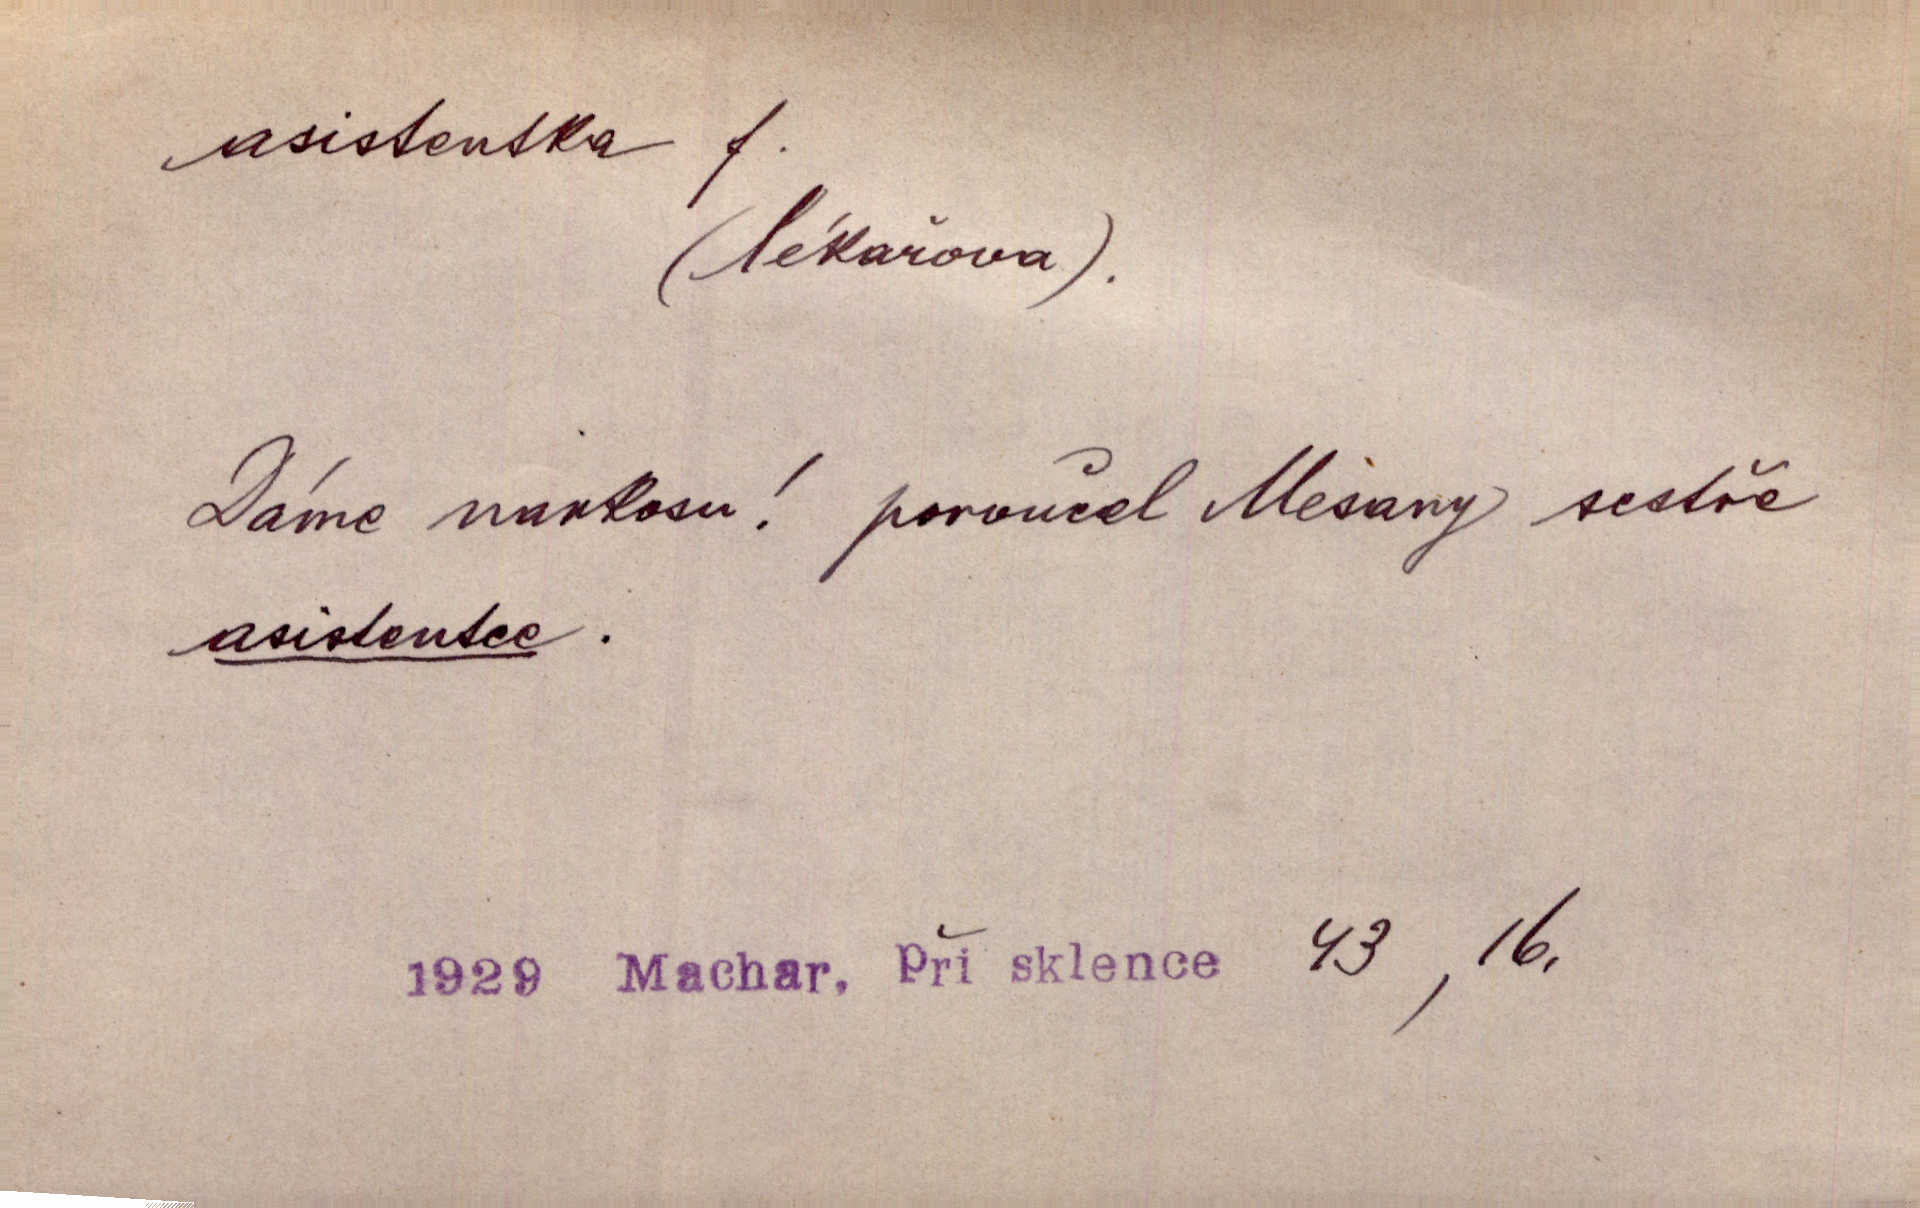 asistentka f.
(lékařova).
Dáme narkosu! poroučel Mesany sestře
asistentce.
1929 Machar, Při sklence 43, 16.